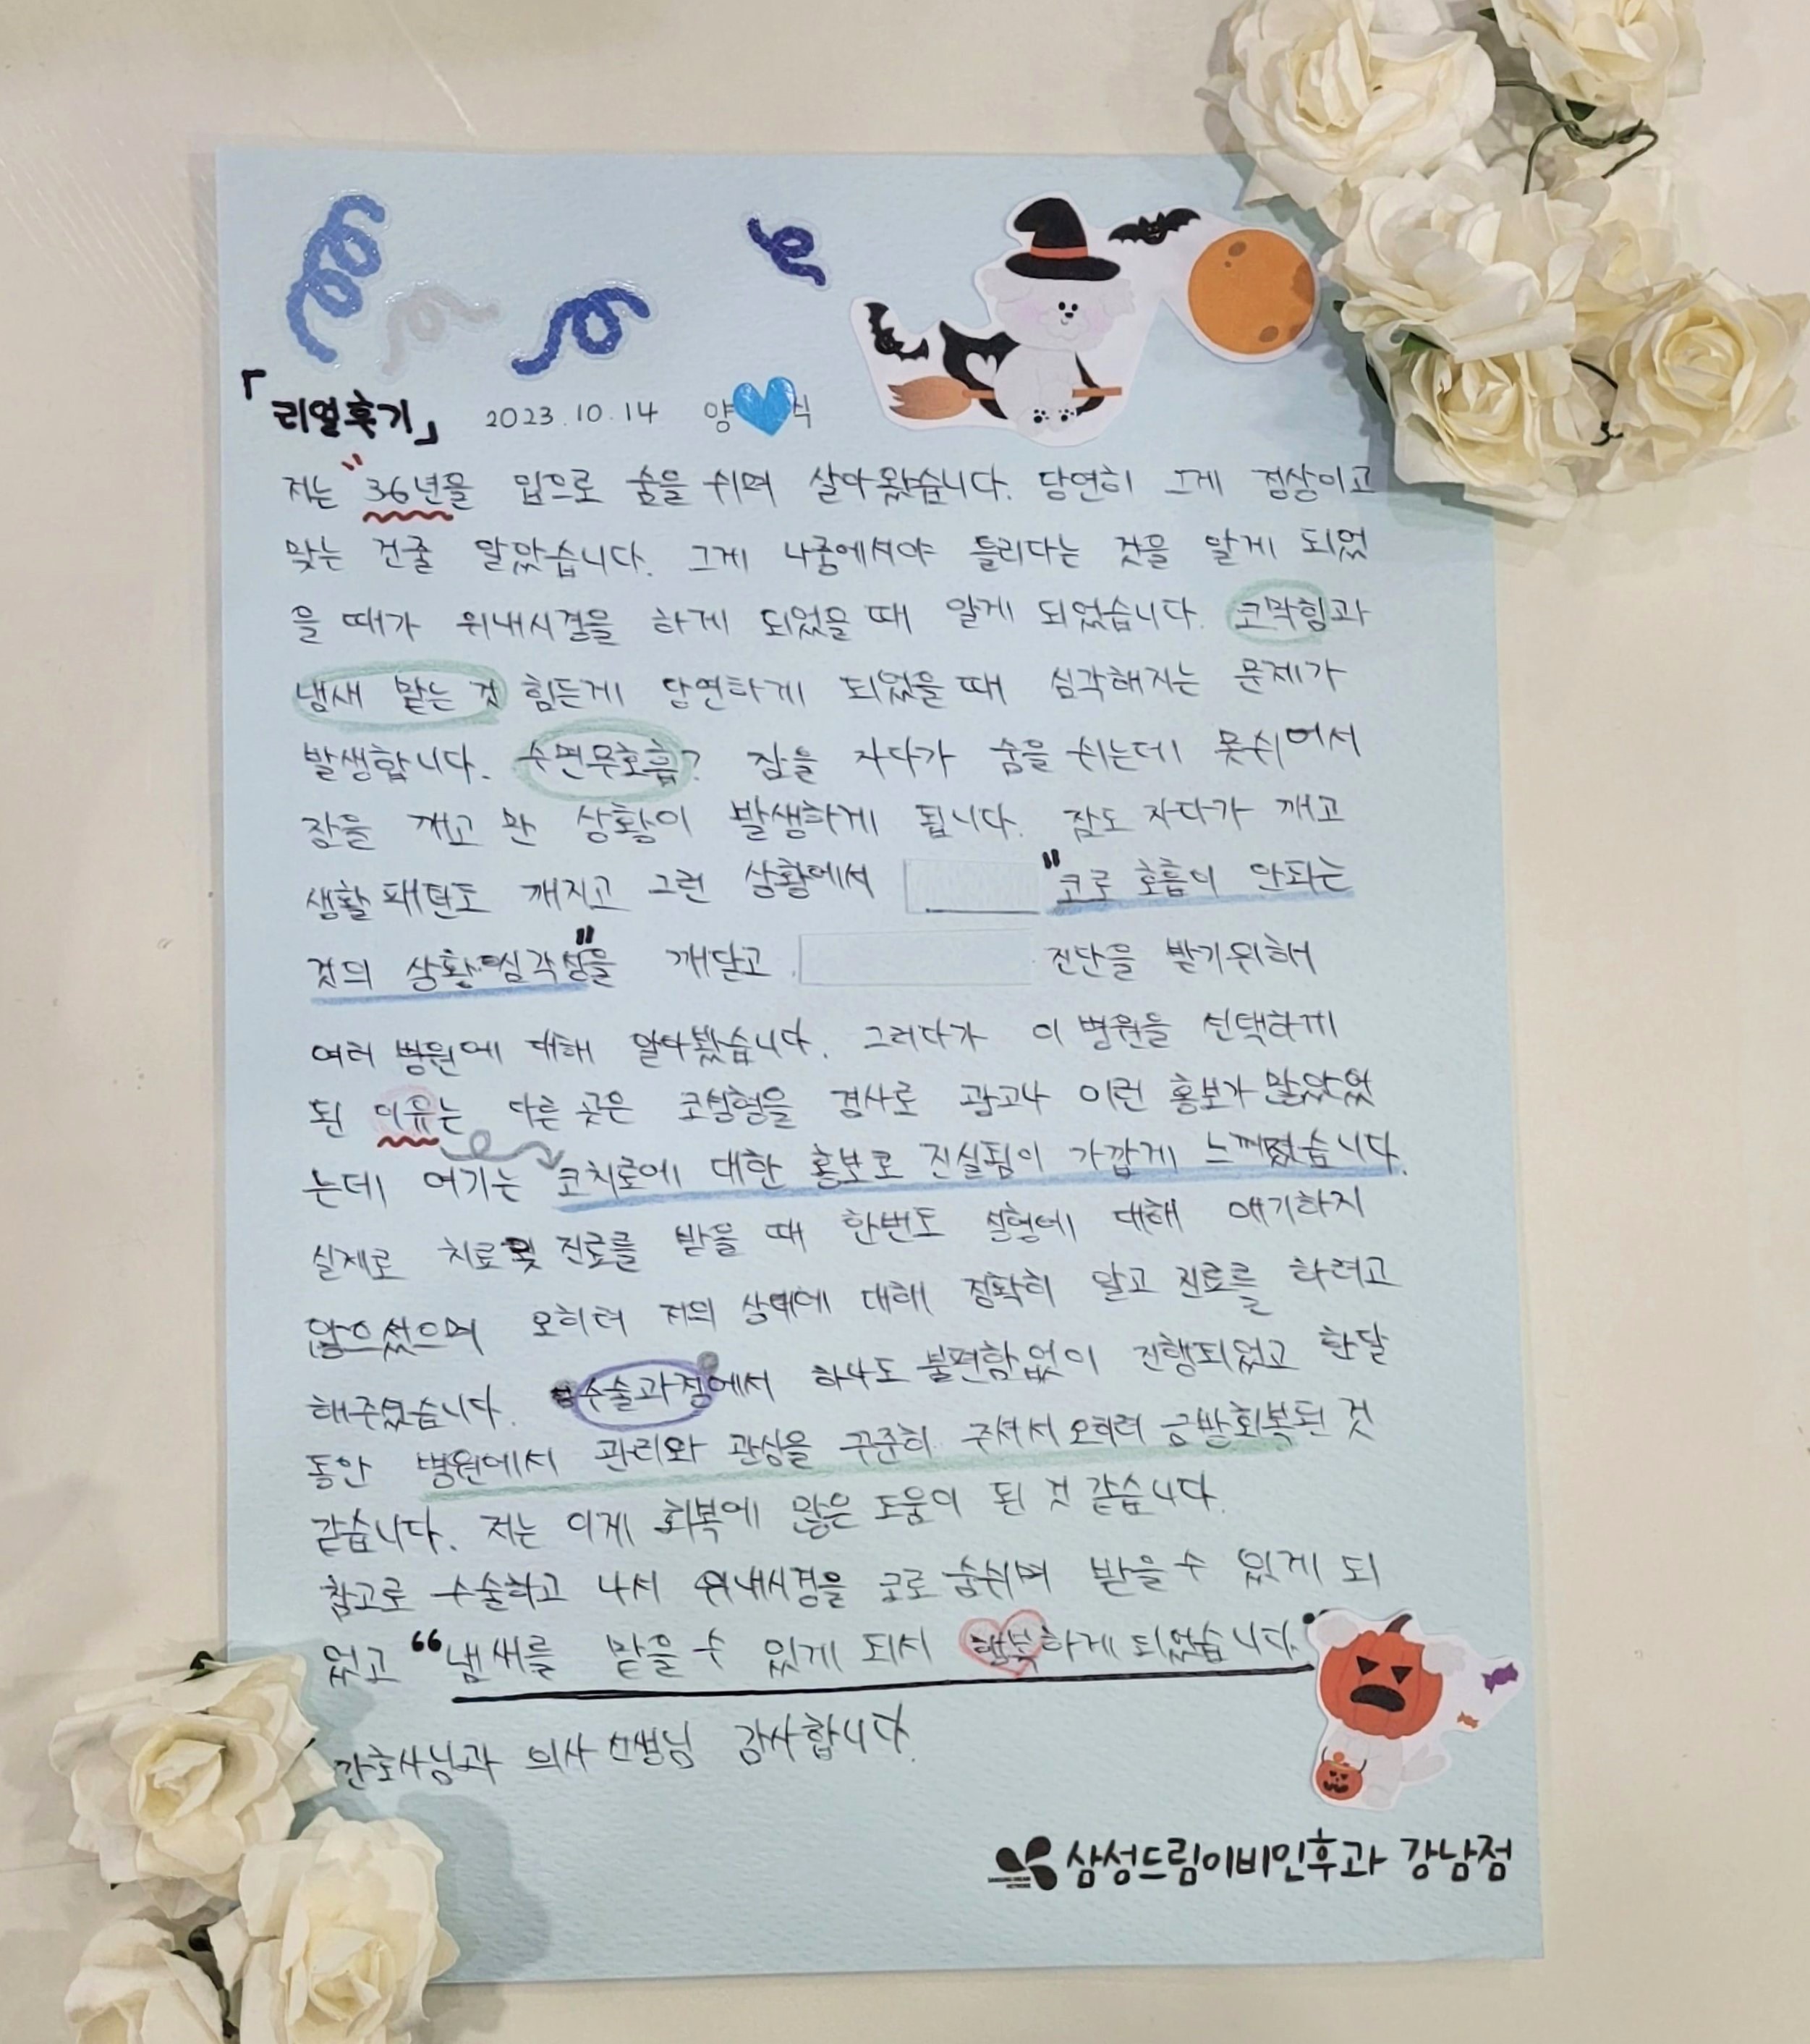 「리얼후기」 2023.10.14 양 식
저는 "36년을 입으로 숨을 쉬며 살아왔습니다. 당연히 그게 정상이고
맞는 건줄 알았습니다. 그게 나중에서야 틀리다는 것을 알게 되었
을 때가 위내시경을 하게 되었을 때 알게 되었습니다. 코막힘과
냄새 맡는 것 힘든게 당연하게 되었을 때 심각해지는 문제가
발생합니다. 수면무호흡? 잠을 자다가 숨을 쉬는데 못쉬어서
잠을 깨고 만 상황이 발생하게 됩니다. 잠도 자다가 깨고
생활패턴도 깨지고 그런 상황에서 "코로 호흡이 안되는
것의 상황 심각성"을 깨닫고 진단을 받기위해
여러 병원에 대해 알아봤습니다. 그러다가 이 병원을 선택하게
된 이유는 다른 곳은 코성형을 겸사로 광고나 이런 홍보가 많았었
는데 여기는 코치료에 대한 홍보로 진실됨이 가깝게 느껴졌습니다.
실제로 치료 및 진료를 받을 때 한번도 성형에 대해 얘기하지
않으셨으며 오히려 저의 상태에 대해 정확히 알고 진료를 하려고
해주셨습니다. 수술과정에서 하나도 불편함없이 진행되었고 한달
동안 병원에서 관리와 관심을 꾸준히 주셔서 오히려 금방회복된 것
같습니다. 저는 이게 회복에 많은 도움이 된 것 같습니다.
참고로 수술하고 나서 위내시경을 코로 숨쉬며 받을 수 있게 되
었고 "냄새를 맡을 수 있게 되서 행복하게 되었습니다."
간호사님과 의사선생님 감사합니다.
삼성드림이비인후과 강남점